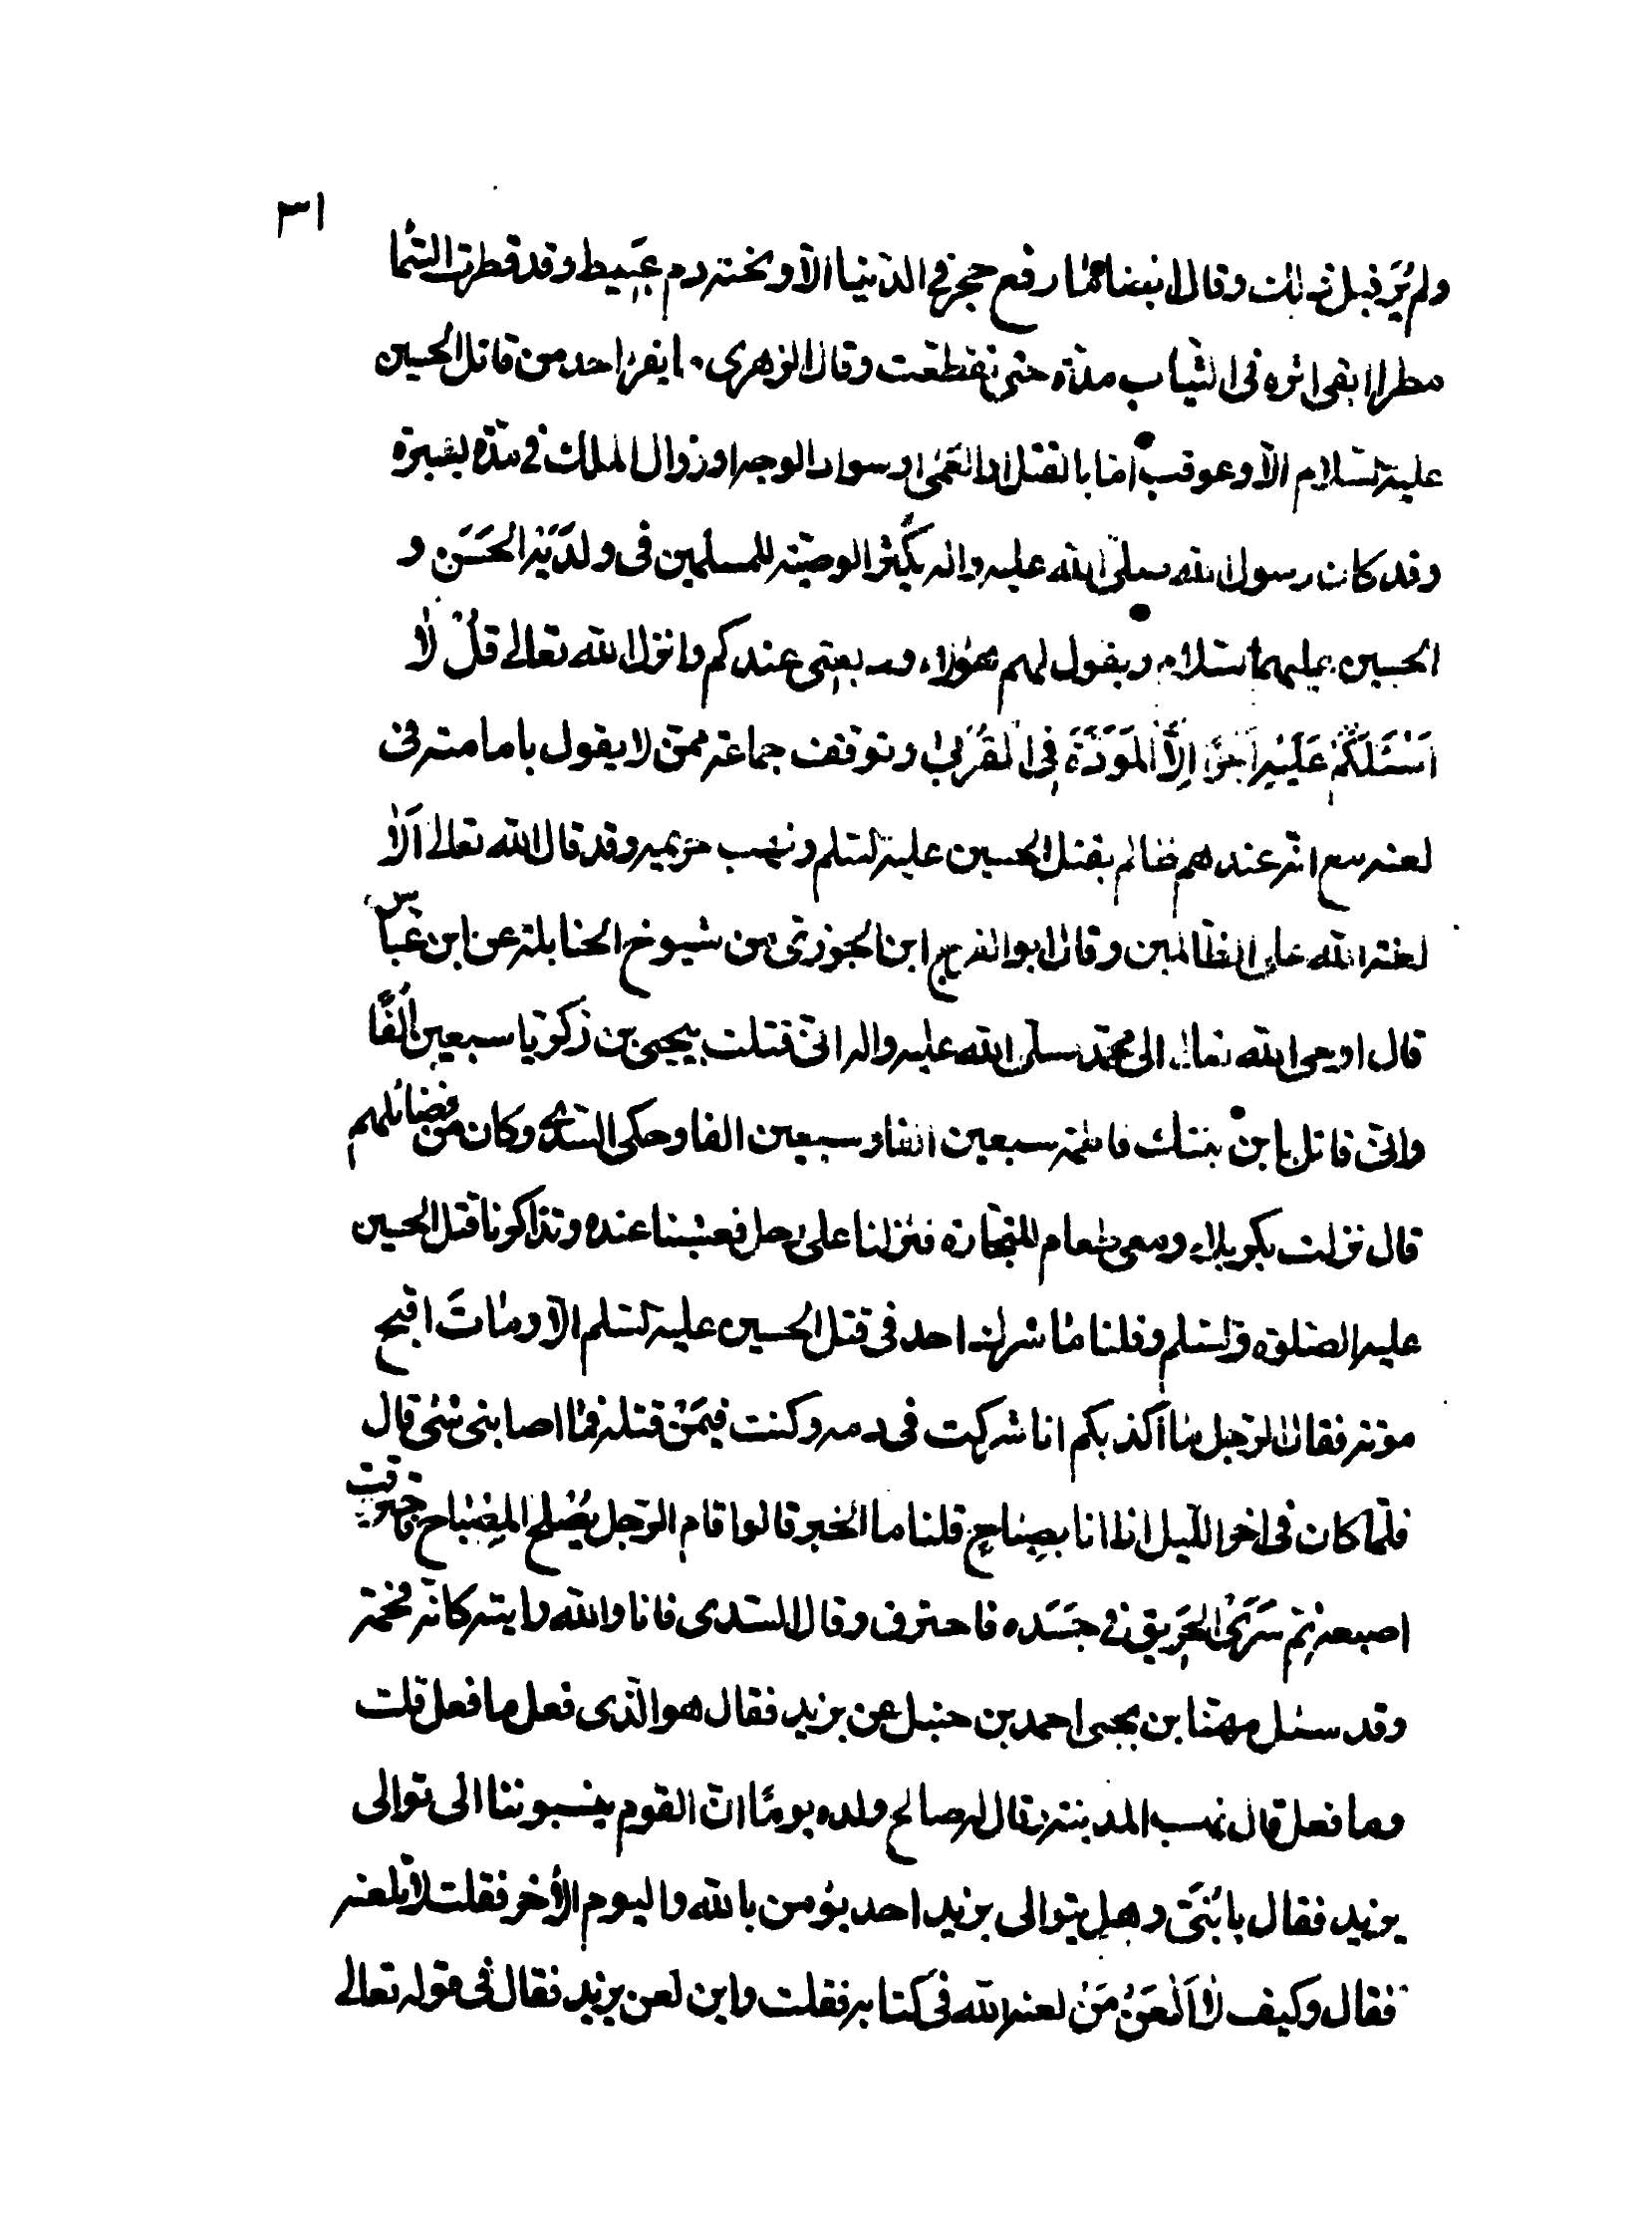 ٣١
ولم يُرَ قبل ذلك وقال ايضا ما رفع حجر في الدّنيا الّا وتحته دم عَبيط وقد قطرت السّما
مطرا ابقى اثره في الثّياب مدّة حتى تقطّعت وقال الزهرى احد من قاتل الحسين
عليه السّلام الّا وعوقب امّا بالقتل او العمٰى او سواد الوجه او زوال الملك في مدّة يسيرة
وقد كان رسول الله صلّى الله عليه واله يكثر الوصيّة للمسلمين فى ولدَيْه الحَسَن و
الحسين عليهما السّلام ويقول لهم هؤلاء وديعتى عندكم وانزل الله تعالى قُلْ لٰا
اَسْئَلُكُمْ عَلَيْهِ اَجْرًا اِلَّا الْمَوَدَّةَ فِى الْقُرْبىٰ وتوقف جماعة ممّن لا يقول بامامته فى
لعنه مع انّه عندهم ظالم بقتل الحسين عليه السّلم ونهب حريمه وقد قال الله تعالى اَلٰا
لعنة الله على الظّالمين وقال ابو الفرج ابن الجوزىّ من شيوخ الحنابلة عن ابن عبّاس
قال اوحى الله تعالى الى محمّد صلّى الله عليه واله انّى قتلت بيحيى بن زكريّا سبعين اَلْفًا
وانّى قاتل بابن بنتك فاطمة سبعين الفا وسبعين الفا وحكى السّدّى وكان من فضائلهم
قال نزلت بكربلاء ومعى طعام للتّجارة فنزلنا على رجل فعشينا عنده وتذاكرنا قتل الحسين
عليه الصّلوة والسّلم وقلنا مٰا شرك احد فى قتل الحسين عليه السّلم الّا ومٰاتَ اقبح
موتة فقال الرّجل مٰا اكذبكم انا شركت فى دمه وكنت فيمَنْ قتله فمٰا اصابنى شئ قال
فلمّا كان فى اخر اللّيل اذا انا بصِيٰاحٍ قلنا ما الخبر قالوا قام الرّجل يُصْلِح المِصْبٰاح فاحترقت
اصبعه ثم سَرَى الحَرِيق فى جَسَده فاحترق وقال السّدى فانا والله رايته كانّه فحمة
وقد سئل مهنّا بن يحيى احمد بن حنبل عن يزيد فقال هو الّذى فعل ما فعل قلت
وما فعل قال نهب المدينة وقال له صالح ولده يومًا انّ القوم ينسبوننا الى توالى
يزيد فقال يا بُنَىّ وهل يتوالى يزيد احد يؤمن بالله واليوم الأخر فقلت لم لا تلعنه
فقال وكيف لٰا اَلْعَنُ مَنْ لعنه الله فى كتابه فقلت واين لعن يزيد فقال فى قوله تعالى